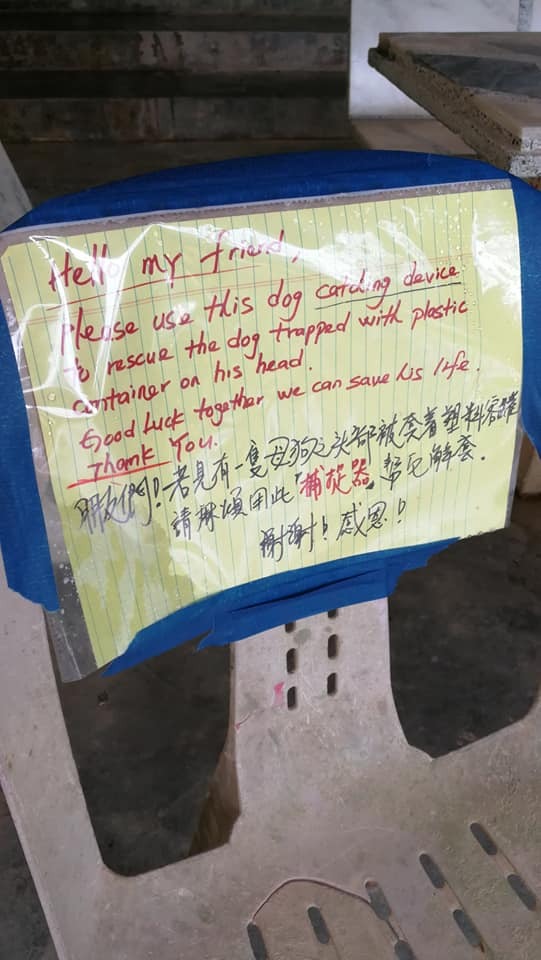 Hello my friend,
Please use this dog catching device
to rescue the dog trapped with plastic
container on his head.
Good Luck together we can save his life.
Thank You.
朋友們!若見有一隻母狗之頭部被套着塑料容罐
請麻煩用此"捕捉器"幫它解套.
謝謝! 感恩!